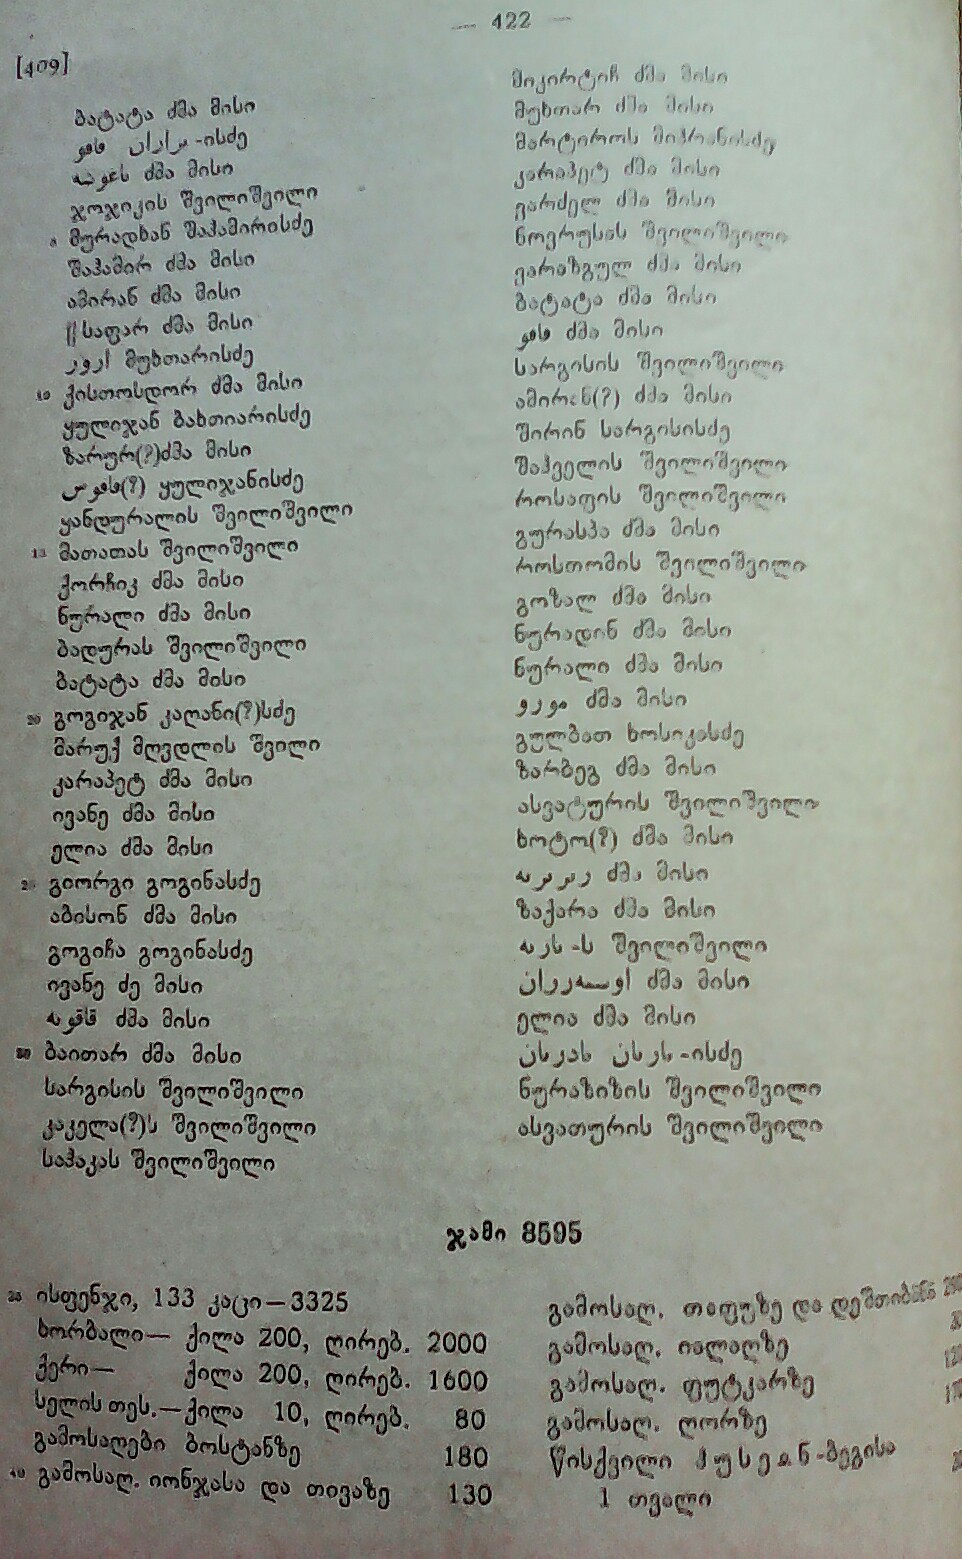 — 422 —
[409]
ბატატა ძმა მისი
-ისძე
ძმა მისი
ჯოჯიკის შვილიშვილი
5 მურადხან შაჰამირისძე
შაჰამირ ძმა მისი
ამირან ძმა მისი
||საფარ ძმა მისი
მუხთარისძე
10 ქისთოსდორ ძმა მისი
ყულიჯან ბახთიარისძე
ზარურ(?)ძმა მისი
(?) ყულიჯანისძე
ყანდურალის შვილიშვილი
15 მათათას შვილიშვილი
ქორჩიკ ძმა მისი
ნურალი ძმა მისი
ბადურას შვილიშვილი
ბატატა ძმა მისი
20 გოგიჯან კაღანი(?)სძე
მარუქ მღვდლის შვილი
კარაპეტ ძმა მისი
ივანე ძმა მისი
ელია ძმა მისი
25 გიორგი გოგინასძე
აბისონ ძმა მისი
გოგიჩა გოგინასძე
ივანე ძე მისი
ძმა მისი
30 ბაითარ ძმა მისი
სარგისის შვილიშვილი
კაკელა(?)ს შვილიშვილი
საჰაკას შვილიშვილი
მიკირტიჩ ძმა მისი
მუხთარ ძმა მისი
მარტიროს მიჰრანისძე
კარაპეტ ძმა მისი
ვარძელ ძმა მისი
ნოვრუსას შვილიშვილი
ყარაზგულ ძმა მისი
ბატატა ძმა მისი
ძმა მისი
სარგისის შვილიშვილი
ამირან(?) ძმა მისი
შირინ სარგისისძე
შაჰველის შვილიშვილი
როსაფის შვილიშვილი
გურასპა ძმა მისი
როსთომის შვილიშვილი
გოზალ ძმა მისი
ნურადინ ძმა მისი
ნურალი ძმა მისი
ძმა მისი
გულბათ ხოსიკასძე
ზარბეგ ძმა მისი
ასვატურის შვილიშვილი
ხოტო(?) ძმა მისი
ძმა მისი
ზაქარა ძმა მისი
-ს შვილიშვილი
ძმა მისი
ელია ძმა მისი
-ისძე
ნურაზიზის შვილიშვილი
ასვათურის შვილიშვილი
ჯამი 8595
35 ისფენჯი, 133 კაცი—3325
ხორბალი— ქილა 200, ღირებ. 2000
ქერი— ქილა 200, ღირებ. 1600
სელის თეს.—ქილა 10, ღირებ. 80
გამოსაღები ბოსტანზე 180
40 გამოსაღ. იონჯასა და თივაზე 130
გამოსაღ. თაფუზე და დეშთიბანა
გამოსაღ. იალაღზე
გამოსაღ. ფუტკარზე
გამოსაღ. ღორზე
წისქვილი ჰუსეინ-ბეგისა
1 თვალი